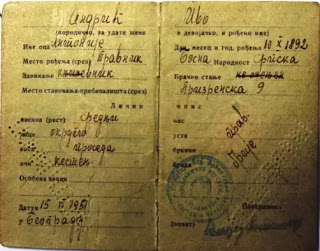 Андрић Иво
(породично, за удате жене и девојачко, и рођено име)
Име оца Антоније Дан, месец и год. рођења 10 X 1892
Место рођења (срез) Травник Босна Народност Српска
Занимање књижевник Брачно стање
Место становања-пребивалишта (срез) Призренска 9
Лични опис
висина (раст) средњи нос прав.
лице округло уста
коса проседа
очи кестењ. брада брије
Особени знаци
Датум 15 1951
у Београд
(печат)